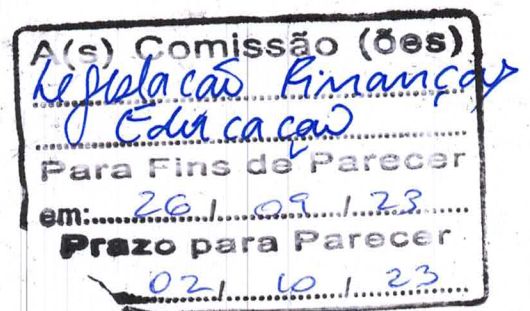 A(s) Comissão (ões)
Legislacão Finanças
Educação
Para Fins de Parecer
em: 26 / 09 / 23
Prazo para Parecer
02 / 10 / 23